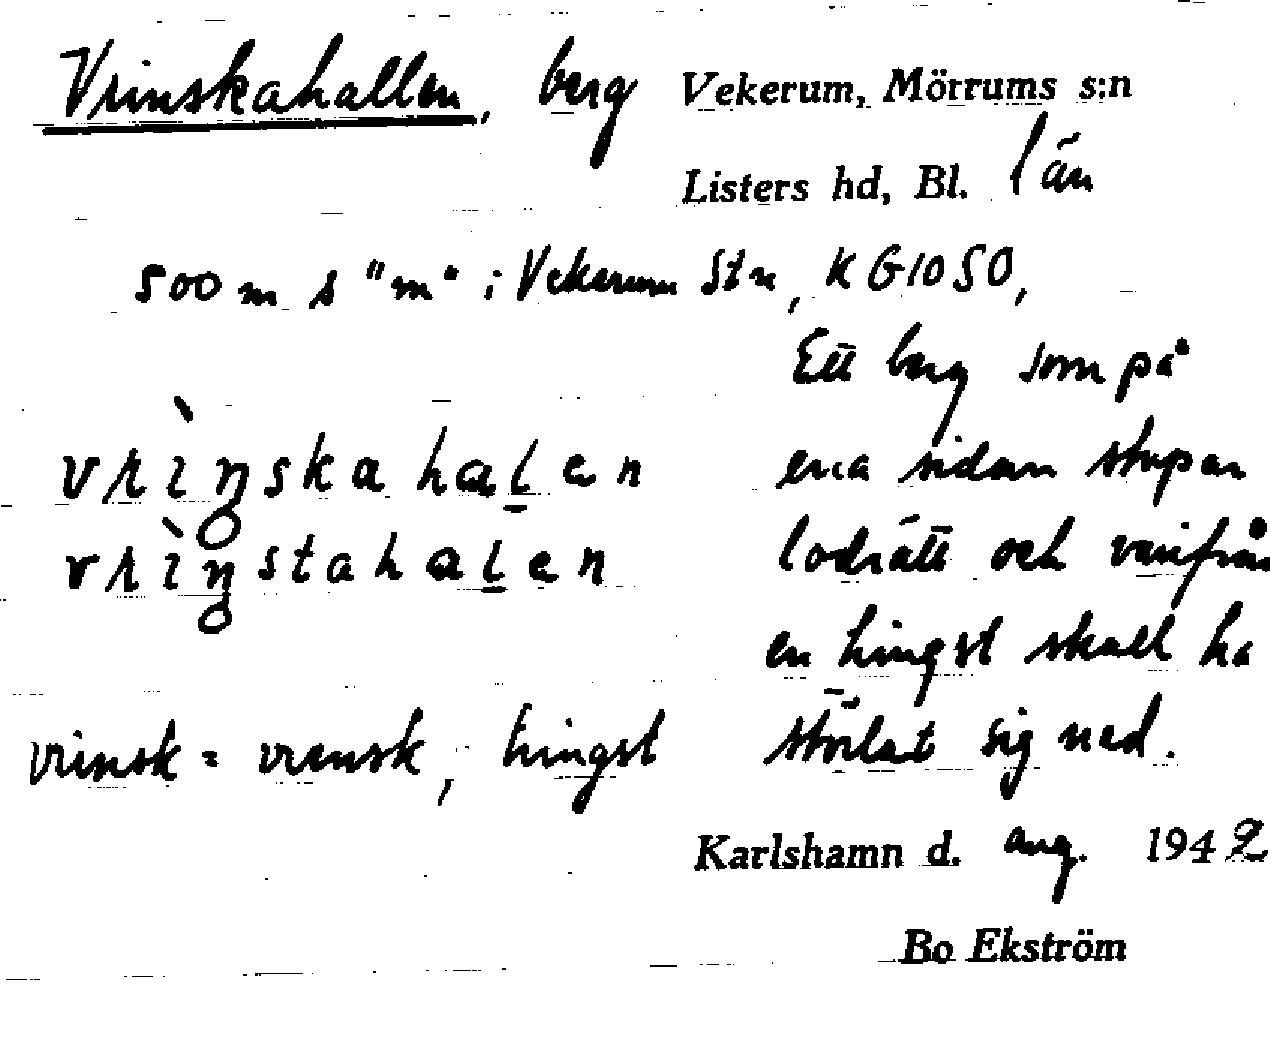 Vrinskahallen, berg Vekerum, Mörrums s:n
Listers hd, Bl. län
500 m s "m" i Vekerum Stn, KG1050,
Ett berg som på
vrìŋskahaḻen ena sidan stupar
vrìŋstahaḻen lodrätt och varifrån
en hingst skall ha
vrinsk = vrensk, hingst störtat sig ned.
Karlshamn d. aug. 1942
Bo Ekström